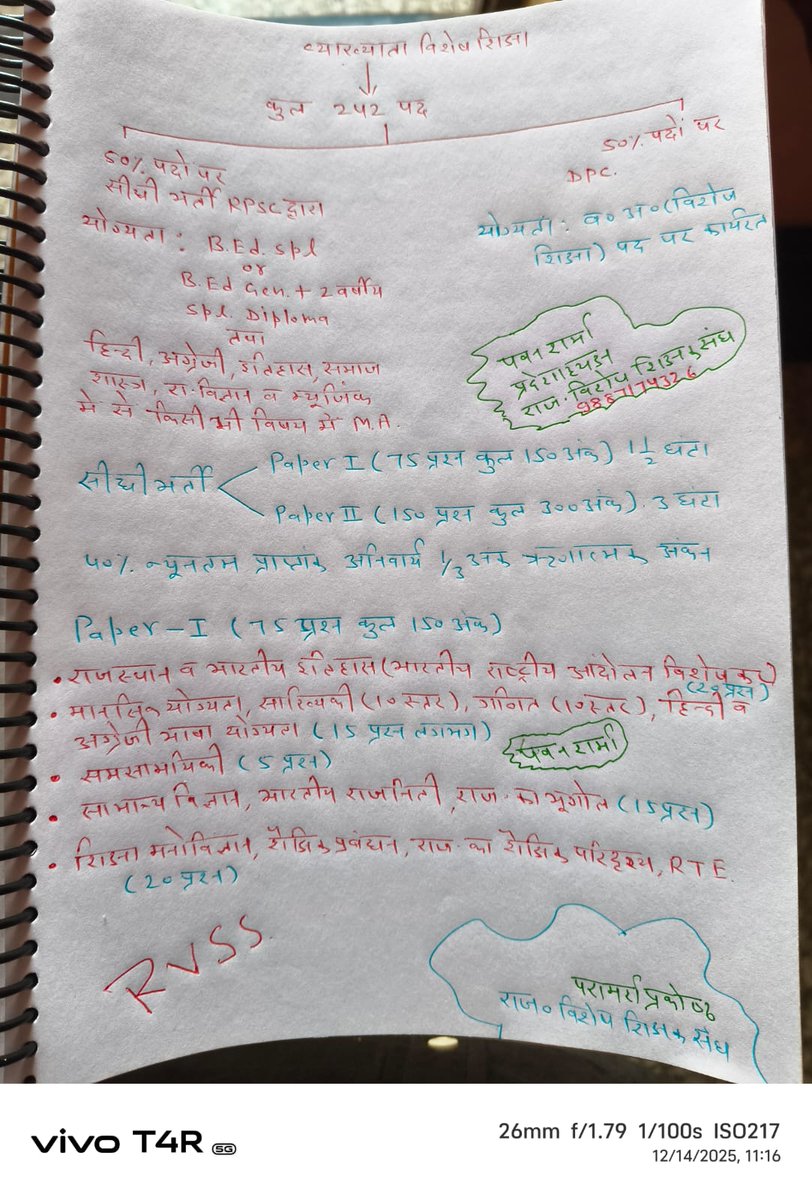 व्याख्याता विशेष शिक्षा
कुल 242 पद
50% पदों पर
सीधी भर्ती RPSC द्वारा
योग्यता : B.Ed. spl
or
B.Ed Gen. + 2 वर्षीय
Spl. Diploma
तथा
हिन्दी, अंग्रेजी, इतिहास, समाज
शास्त्र, रा. विज्ञान व म्यूजिक
में से किसी भी विषय में M.A.
50% पदों पर
DPC.
योग्यता : व॰ अ॰ (विशेष
शिक्षा) पद पर कार्यरत
पवन शर्मा
प्रदेशाध्यक्ष
राज. विशेष शिक्षक संघ
सीधी भर्ती
Paper I (75 प्रश्न कुल 150 अंक) 1 1/2 घंटा
Paper II (150 प्रश्न कुल 300 अंक). 3 घंटा
40% न्यूनतम प्राप्तांक अनिवार्य 1/3 अंक ऋणात्मक अंकन
Paper-I (75 प्रश्न कुल 150 अंक)
• राजस्थान व भारतीय इतिहास (भारतीय राष्ट्रीय आंदोलन विशेषकर)
प्रश्न)
• मानसिक योग्यता, सांख्यिकी (10 स्तर), गणित (10 स्तर), हिन्दी व
अंग्रेजी भाषा योग्यता (15 प्रश्न लगभग)
पवन शर्मा
• समसामयिकी (5 प्रश्न)
• सामान्य विज्ञान, भारतीय राजनिती, राज. का भूगोल (15 प्रश्न)
• शिक्षा मनोविज्ञान, शैक्षिक प्रबंधन, राज. का शैक्षिक परिदृश्य, RTE.
(20 प्रश्न)
RVSS
परामर्श प्रकोष्ठ
राज॰ विशेष शिक्षक संघ
vivo T4R 5G
26mm f/1.79 1/100s ISO217
12/14/2025, 11:16